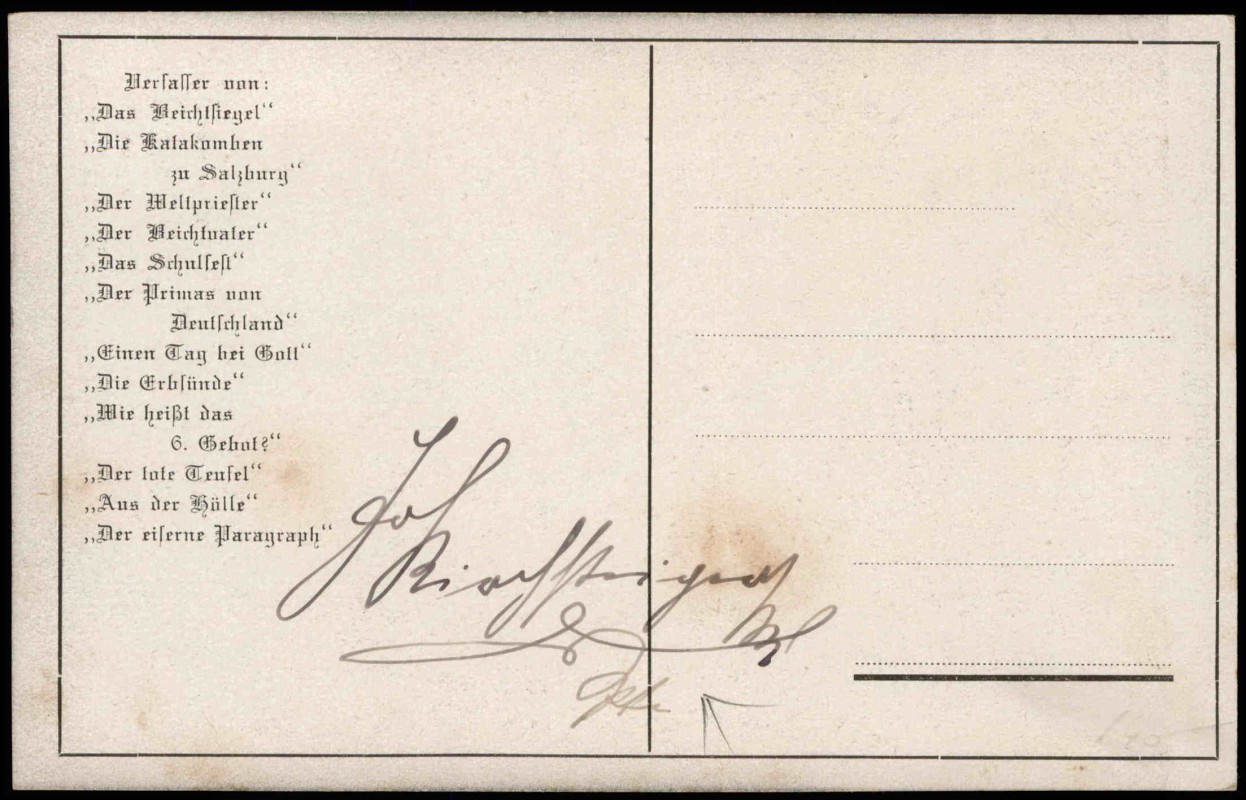 Verfasser von:
„Das Beichtsiegel“
„Die Katakomben
zu Salzburg“
„Der Weltpriester“
„Der Beichtvater“
„Das Schulfest“
„Der Primas von
Deutschland“
„Einen Tag bei Gott“
„Die Erbsünde“
„Wie heißt das
6. Gebot?“
„Der tote Teufel“
„Aus der Hölle“
„Der eiserne Paragraph“
Joh
Kirchsteiger